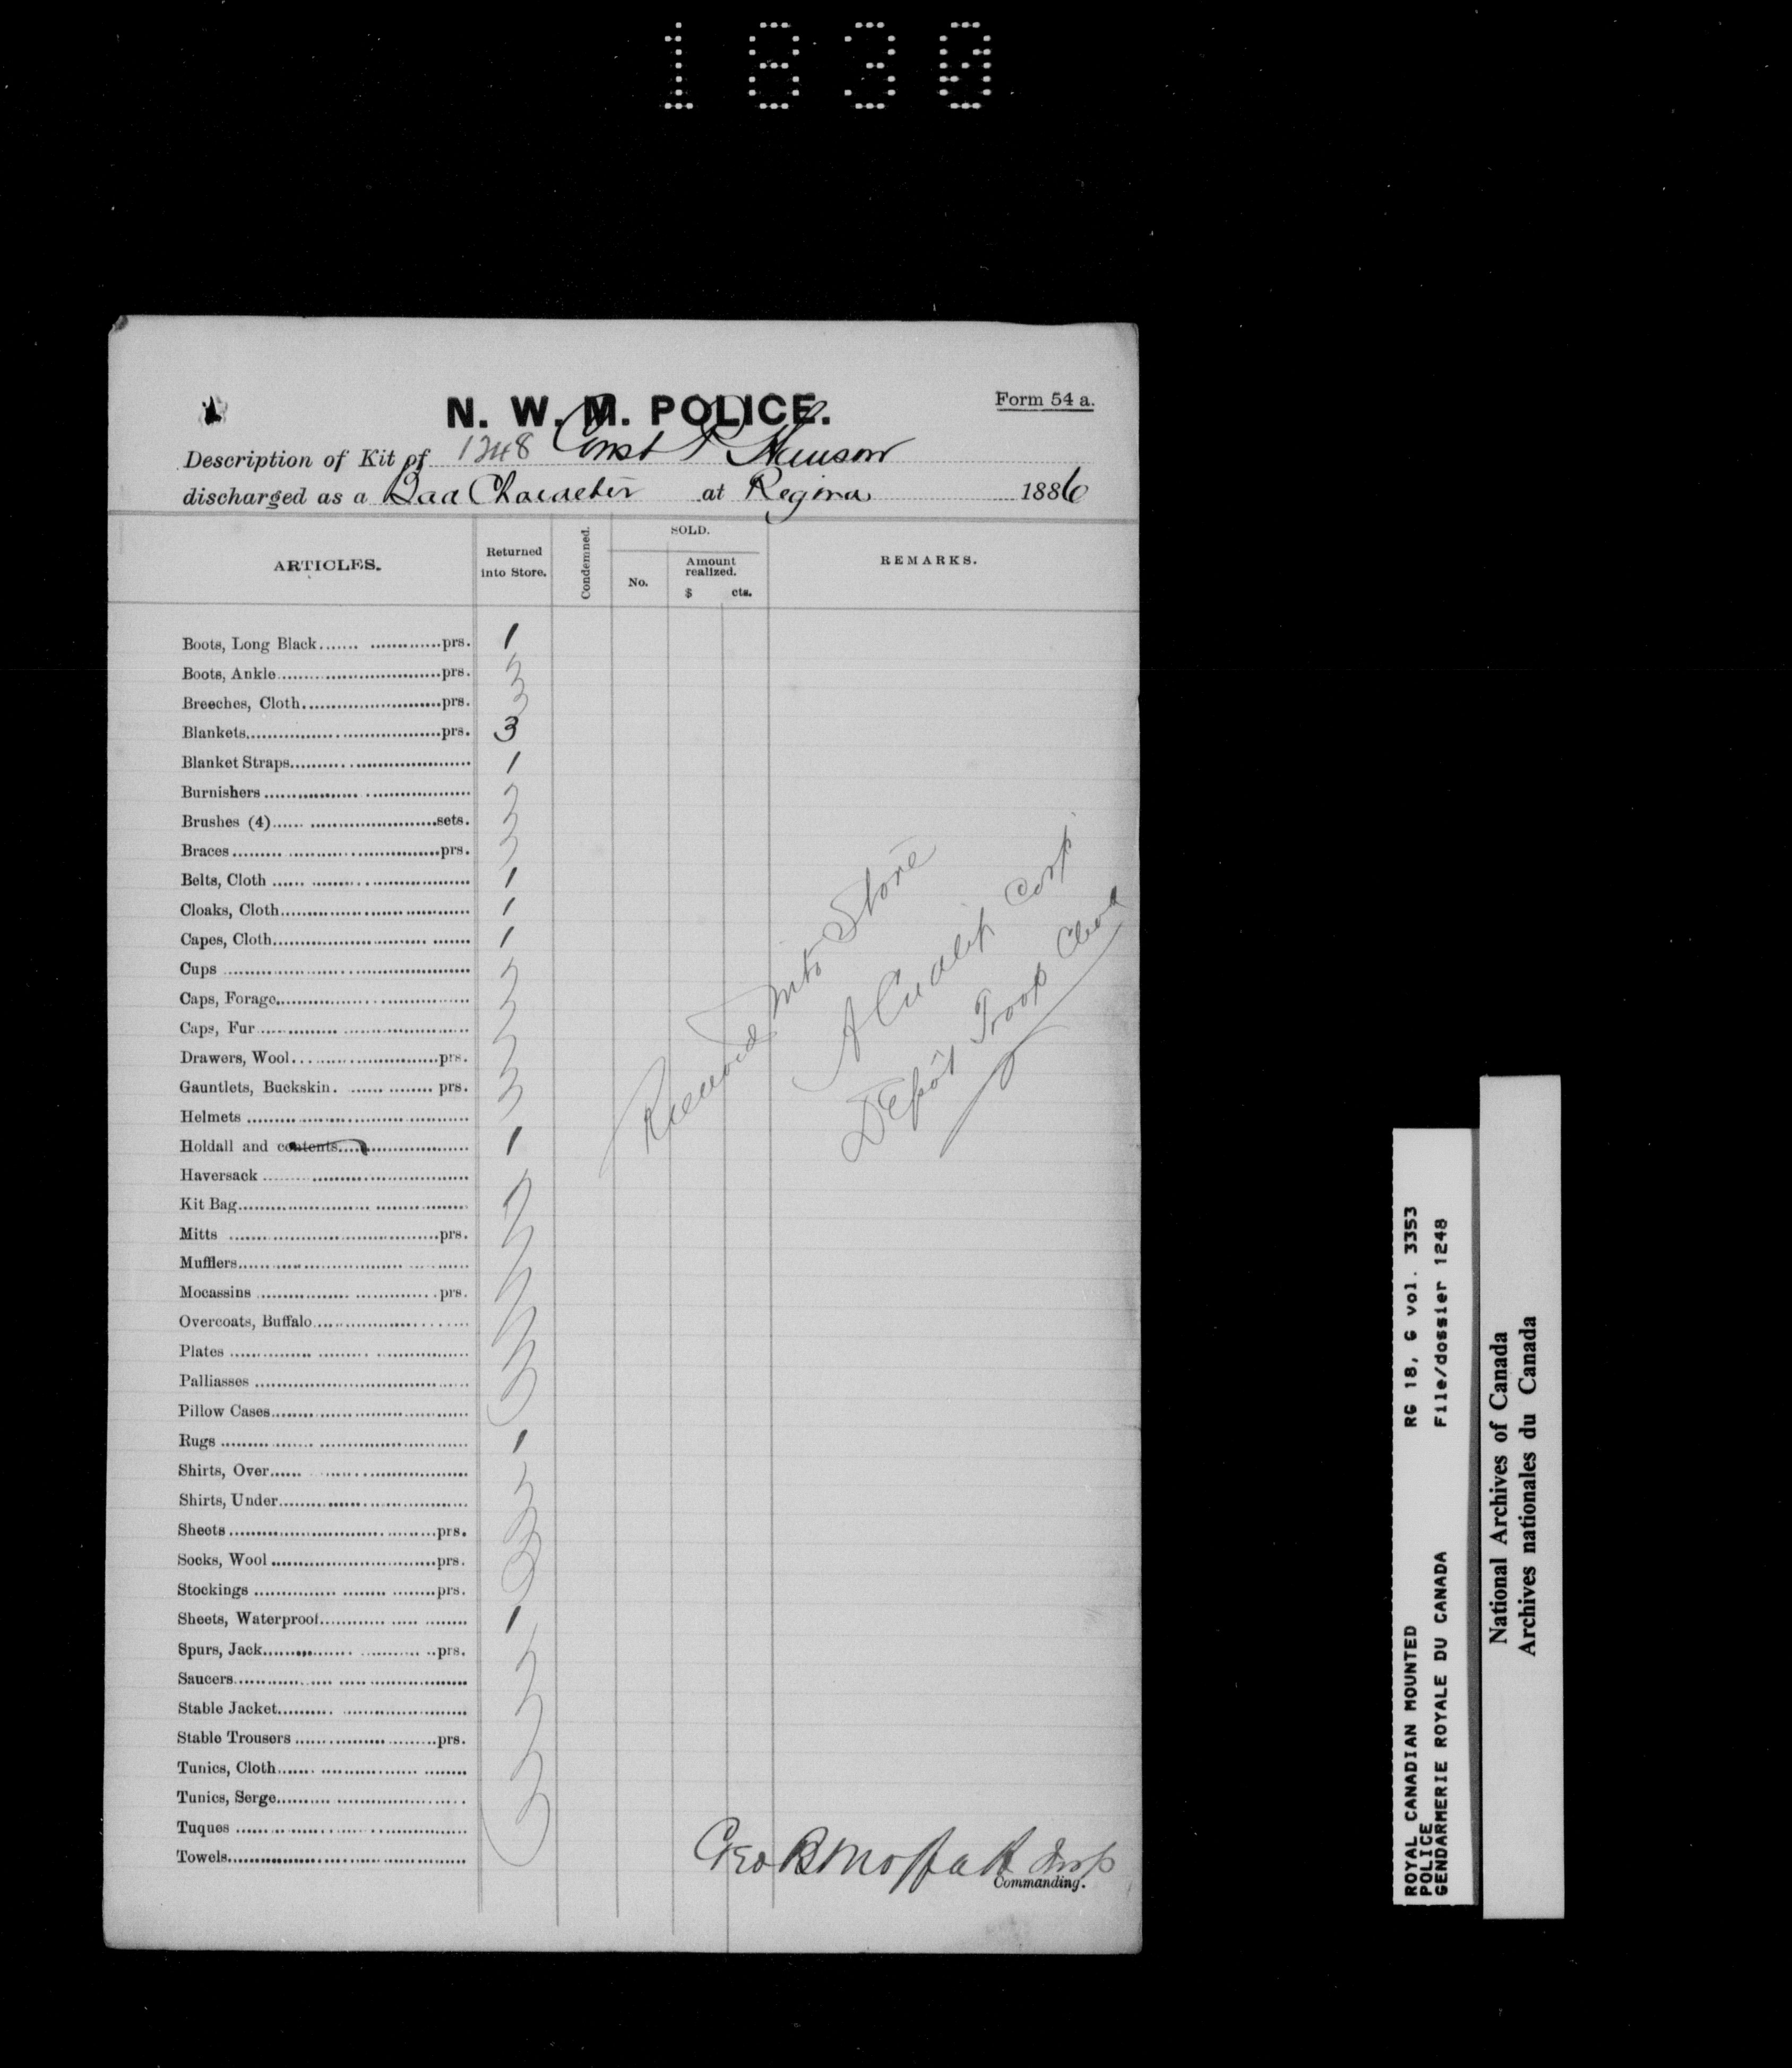 1830
N. W. M. POLICE.
Form 54 a.
Description of Kit of 1248 Const P Hanson
discharged as a Bad Character at Regina 1886
ARTICLES.
Returned into Store.
Condemned.
SOLD.
No.
Amount realized.
$ cts.
REMARKS.
Boots, Long Black prs. 1
Boots, Ankle prs.
Breeches, Cloth prs.
Blankets prs. 3
Blanket Straps 1
Burnishers
Brushes (4) sets.
Braces prs.
Belts, Cloth 1
Cloaks, Cloth 1
Capes, Cloth 1
Cups
Caps, Forage
Caps, Fur
Drawers, Wool prs.
Gauntlets, Buckskin. prs.
Helmets
Holdall and contents 1
Haversack
Kit Bag
Mitts prs.
Mufflers
Mocassins prs.
Overcoats, Buffalo
Plates
Palliasses
Pillow Cases
Rugs 1
Shirts, Over
Shirts, Under
Sheets prs.
Socks, Wool prs.
Stockings prs.
Sheets, Waterproof 1
Spurs, Jack prs.
Saucers
Stable Jacket
Stable Trousers prs.
Tunics, Cloth
Tunics, Serge
Tuques
Towels
Received into Store
Corp
Depot Troop
Geo B Moffatt Insp
Commanding.
ROYAL CANADIAN MOUNTED
POLICE
GENDARMERIE ROYALE DU CANADA
RG 18, G vol. 3353
File/dossier 1248
National Archives of Canada
Archives nationales du Canada